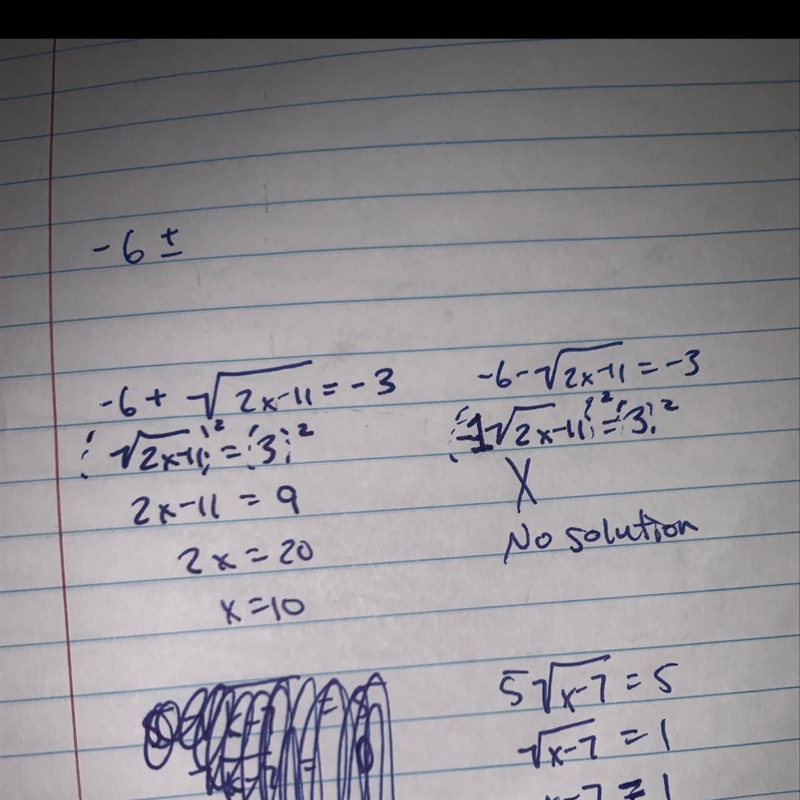 -6 ±
-6 + √(2x-11) = -3
(√(2x-11))² = (3)²
2x-11 = 9
2x = 20
x = 10
-6 - √(2x-11) = -3
(-1√(2x-11))² = (3)²
X
No solution
5√(x-7) = 5
√(x-7) = 1
x-7 = 1